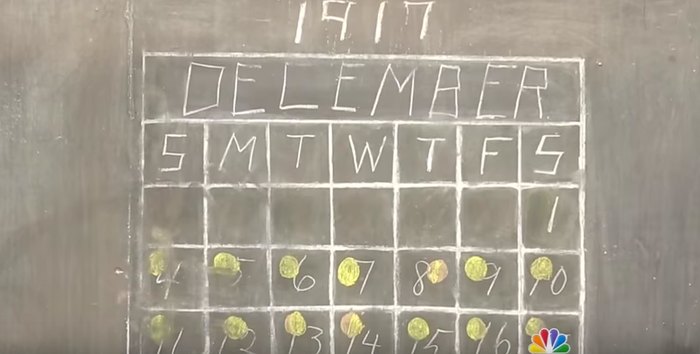 1917
DECEMBER
S M T W T F S
1
4 5 6 7 8 9 10
11 12 13 14 15 16